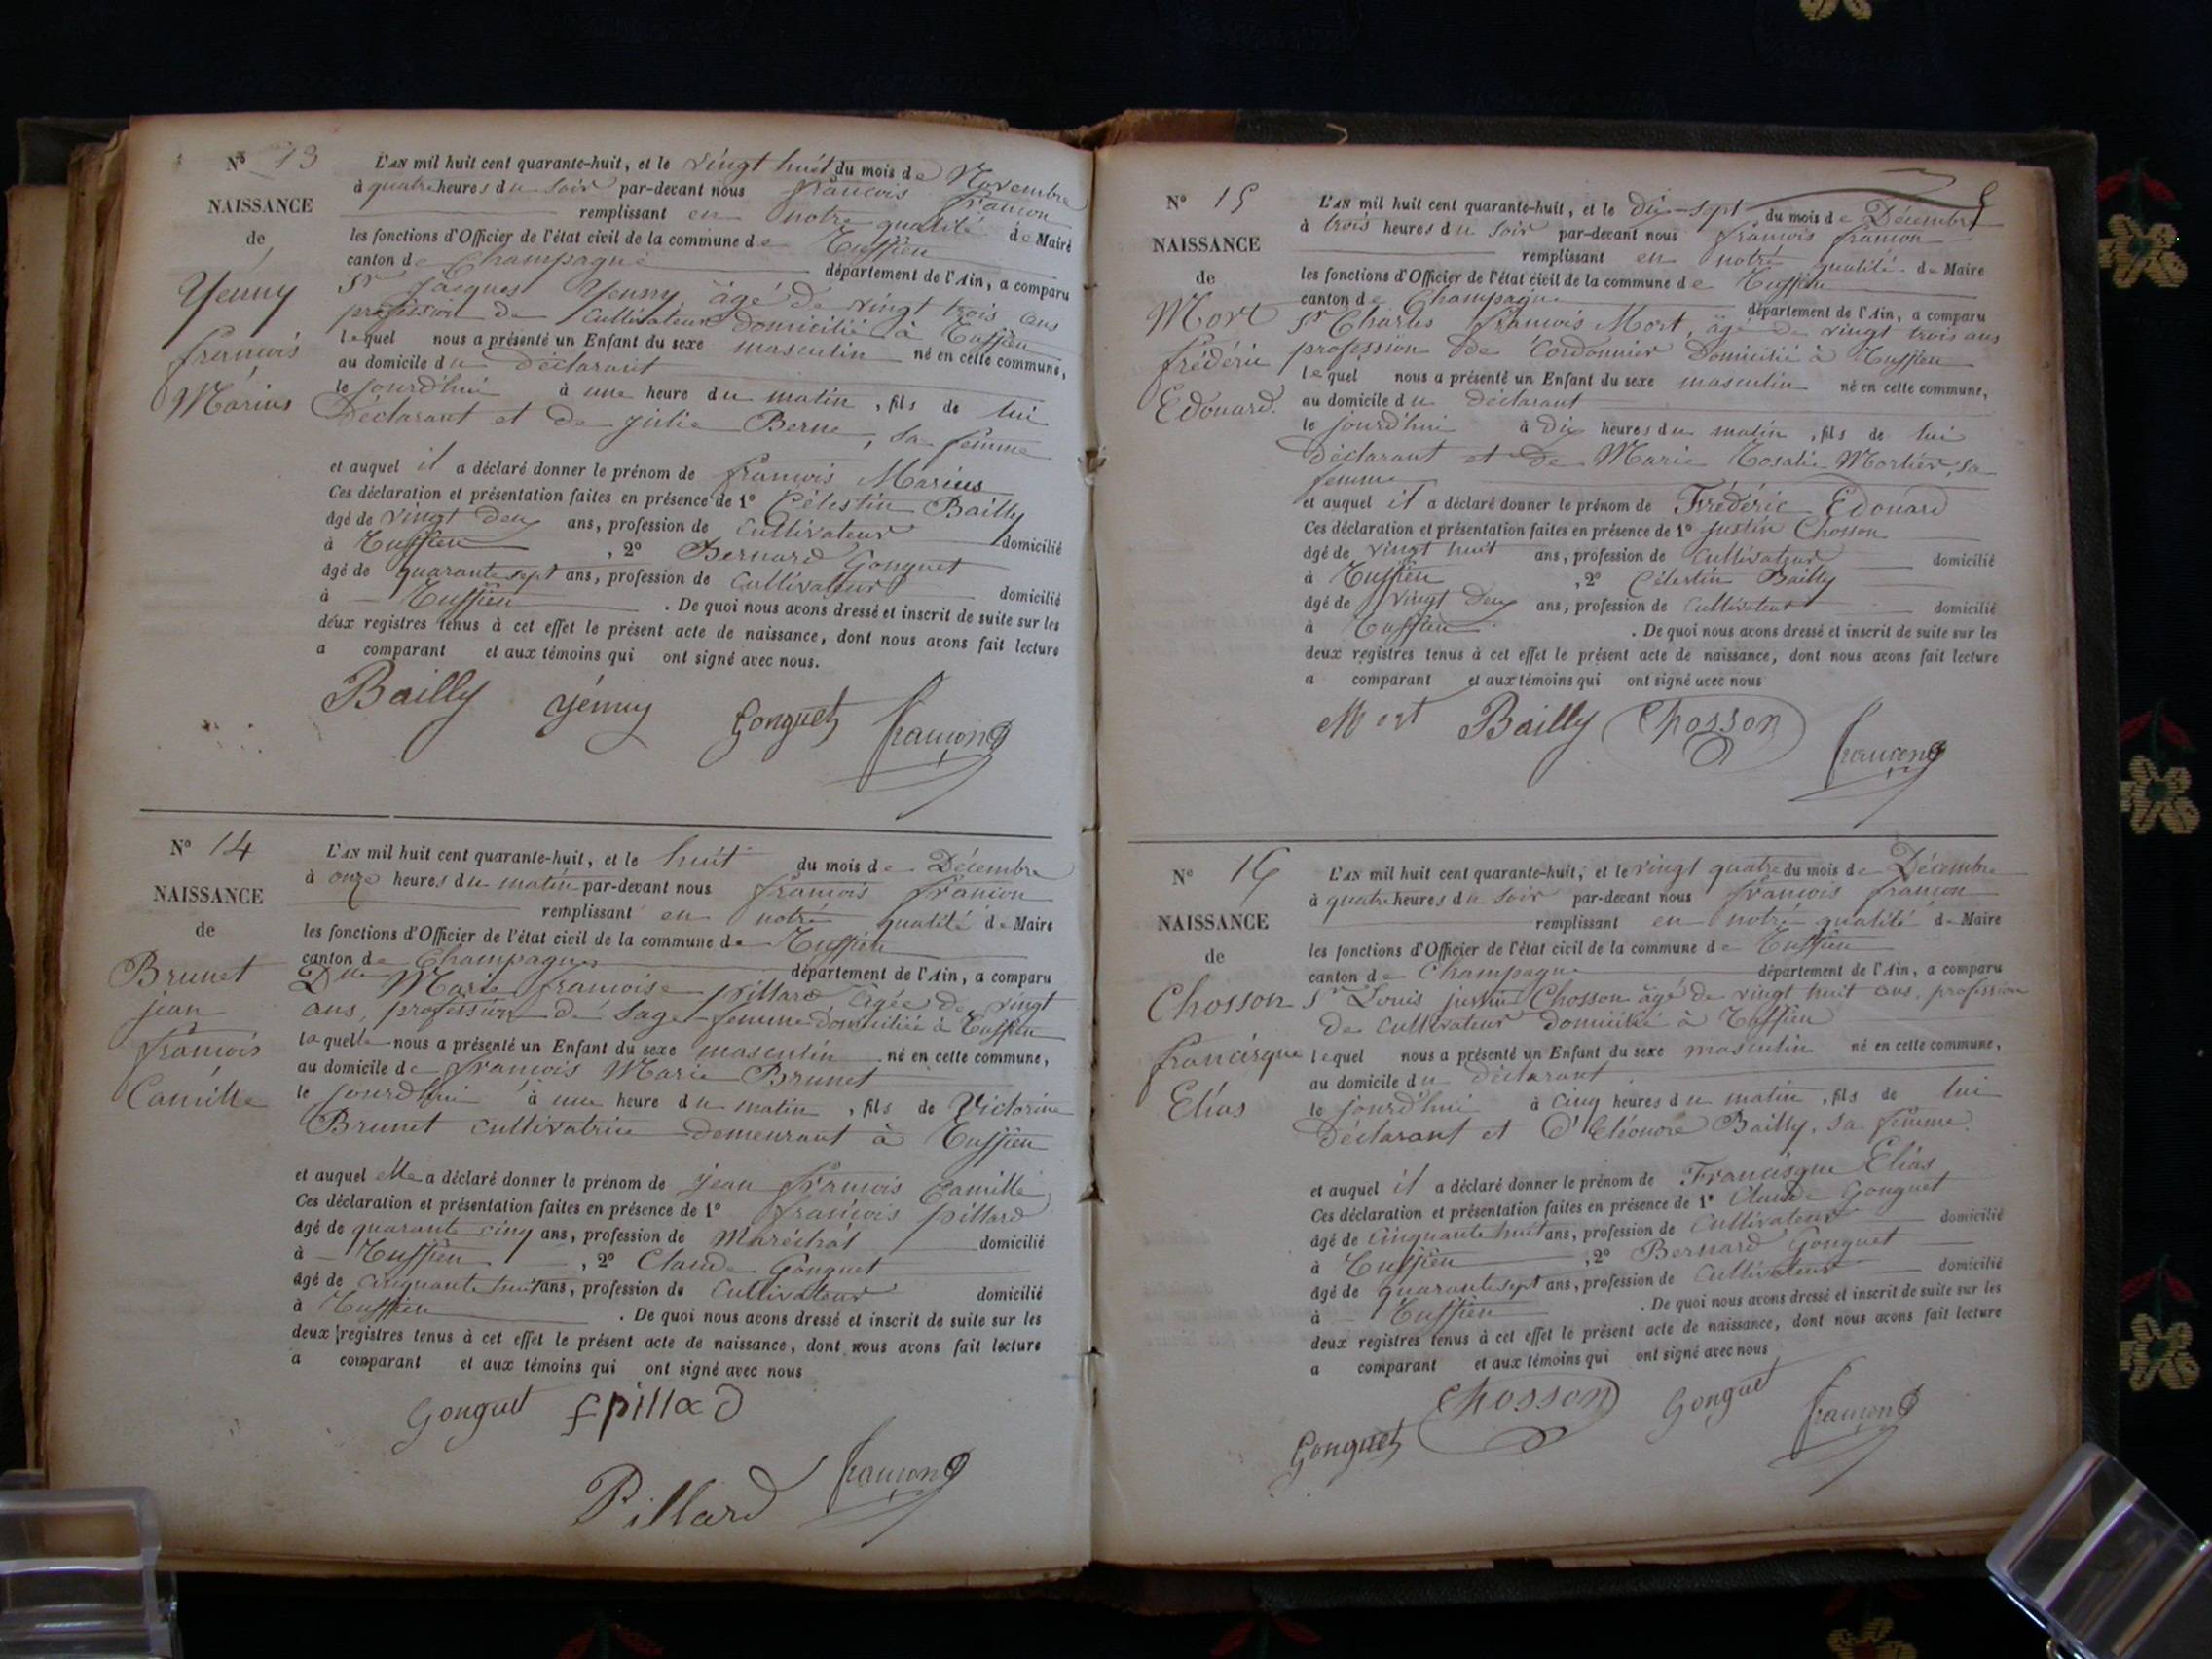 N° 13
NAISSANCE
de
Yenny
françois
Marius
L'AN mil huit cent quarante-huit, et le vingt huit du mois de Novembre
à quatre heures du soir par-devant nous françois françon
remplissant en notre qualité de Maire
les fonctions d'Officier de l'état civil de la commune de
canton de Champagne département de l'Ain, a comparu
Sr Jacques Yenny, âgé de vingt trois ans
profession de Cultivateur domicilié à
lequel nous a présenté un Enfant du sexe masculin né en cette commune,
au domicile du déclarant
le jourd'hui à une heure du matin, fils de lui
Déclarant et de Julie Berne, sa femme
et auquel il a déclaré donner le prénom de françois Marius
Ces déclaration et présentation faites en présence de 1° Célestin Bailly
âgé de vingt deux ans, profession de Cultivateur domicilié
à , 2° Bernard Gonguet
âgé de quarante sept ans, profession de Cultivateur domicilié
à . De quoi nous avons dressé et inscrit de suite sur les
deux registres tenus à cet effet le présent acte de naissance, dont nous avons fait lecture
a comparant et aux témoins qui ont signé avec nous.
Bailly yenny Gonguet françon
N° 14
NAISSANCE
de
Brunet
jean
françois
Camille
L'AN mil huit cent quarante-huit, et le huit du mois de Décembre
à onze heures du matin par-devant nous françois françon
remplissant en notre qualité de Maire
les fonctions d'Officier de l'état civil de la commune de
canton de Champagne département de l'Ain, a comparu
Dlle Marie françoise pillard âgée de vingt
ans, profession de Sage-femme domiciliée à
laquelle nous a présenté un Enfant du sexe masculin né en cette commune,
au domicile de françois Marie Brunet
le jourd'hui à une heure du matin, fils de Victorine
Brunet cultivatrice demeurant à
et auquel elle a déclaré donner le prénom de jean françois Camille
Ces déclaration et présentation faites en présence de 1° françois pillard
âgé de quarante cinq ans, profession de Maréchal domicilié
à , 2° Claude Gonguet
âgé de cinquante huit ans, profession de Cultivateur domicilié
à . De quoi nous avons dressé et inscrit de suite sur les
deux registres tenus à cet effet le présent acte de naissance, dont nous avons fait lecture
a comparant et aux témoins qui ont signé avec nous
Gonguet f pillad
Pillard françon
N° 15
NAISSANCE
de
Mort
frédéric
Edouard.
L'AN mil huit cent quarante-huit, et le dix-sept du mois de Décembre
à trois heures du soir par-devant nous françois françon
remplissant en notre qualité de Maire
les fonctions d'Officier de l'état civil de la commune de
canton de Champagne département de l'Ain, a comparu
Sr Charles françois Mort, âgé de vingt trois ans
profession de Cordonnier domicilié à
lequel nous a présenté un Enfant du sexe masculin né en cette commune,
au domicile du déclarant
le jourd'hui à dix heures du matin, fils de lui
déclarant et de Marie Rosalie Mortier, sa
femme
et auquel il a déclaré donner le prénom de Frédéric Edouard
Ces déclaration et présentation faites en présence de 1° justin Chosson
âgé de vingt huit ans, profession de Cultivateur domicilié
à , 2° Célestin Bailly
âgé de vingt deux ans, profession de Cultivateur domicilié
à . De quoi nous avons dressé et inscrit de suite sur les
deux registres tenus à cet effet le présent acte de naissance, dont nous avons fait lecture
a comparant et aux témoins qui ont signé avec nous
Mort Bailly Chosson françon
N° 16
NAISSANCE
de
Chosson
francisque
Elias
L'AN mil huit cent quarante-huit, et le vingt quatre du mois de Décembre
à quatre heures du soir par-devant nous françois françon
remplissant en notre qualité de Maire
les fonctions d'Officier de l'état civil de la commune de
canton de Champagne département de l'Ain, a comparu
Sr Louis justin Chosson âgé de vingt huit ans, profession
de cultivateur domicilié à
lequel nous a présenté un Enfant du sexe masculin né en cette commune,
au domicile du déclarant
le jourd'hui à cinq heures du matin, fils de lui
déclarant et d'Eléonore Bailly, sa femme.
et auquel il a déclaré donner le prénom de Francisque Elias
Ces déclaration et présentation faites en présence de 1° Claude Gonguet
âgé de Cinquante huit ans, profession de Cultivateur domicilié
à , 2° Bernard Gonguet
âgé de quarante sept ans, profession de Cultivateur domicilié
à . De quoi nous avons dressé et inscrit de suite sur les
deux registres tenus à cet effet le présent acte de naissance, dont nous avons fait lecture
a comparant et aux témoins qui ont signé avec nous
Gonguet Chosson Gonguet françon